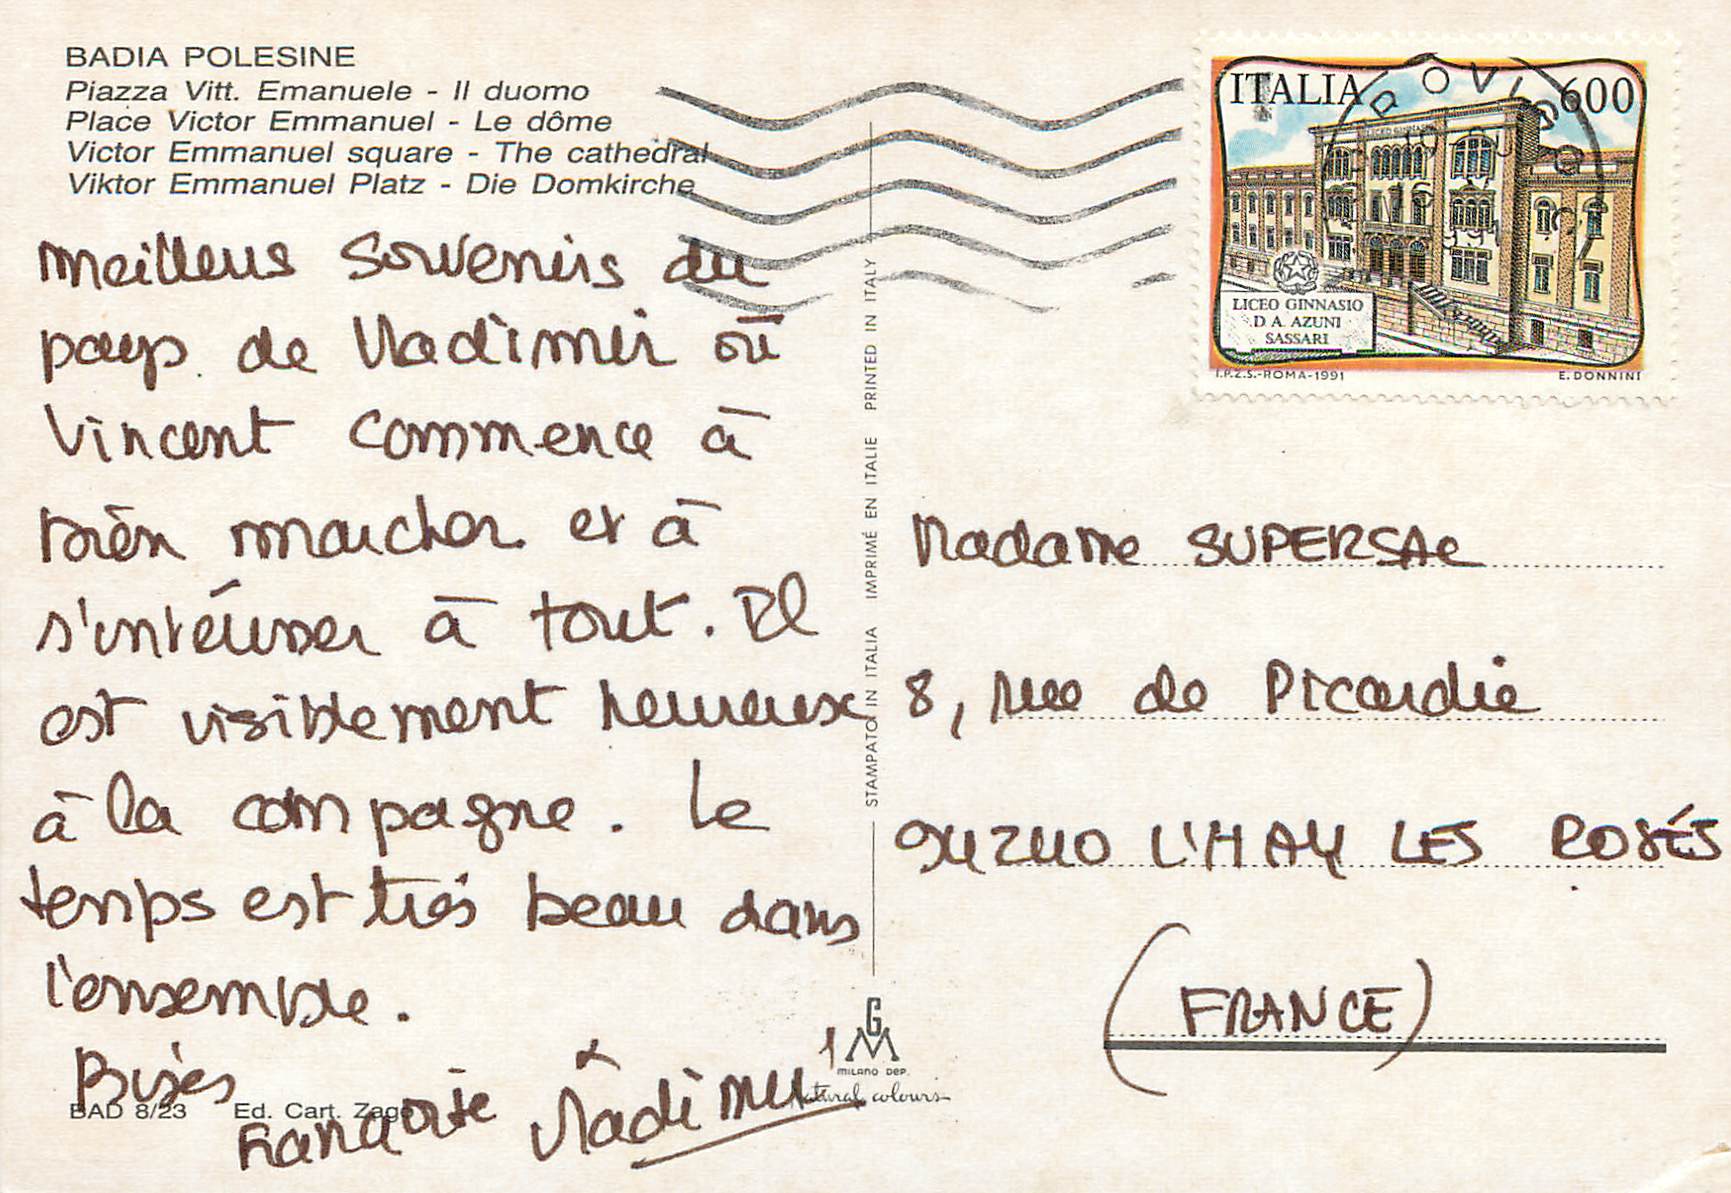 BADIA POLESINE
Piazza Vitt. Emanuele - Il duomo
Place Victor Emmanuel - Le dôme
Victor Emmanuel square - The cathedral
Viktor Emmanuel Platz - Die Domkirche
Meilleurs souvenirs du
pays de Vladimir où
Vincent commence à
bien marcher et à
s'intéresser à tout. Il
est visiblement heureux
à la campagne. Le
temps est très beau dans
l'ensemble.
Bises
Vladimir
BAD 8/23 Ed. Cart. Zago
STAMPATO IN ITALIA IMPRIMÉ EN ITALIE PRINTED IN ITALY
GM
MILANO DEP.
Natural colours
ITALIA 600
LICEO GINNASIO
D. A. AZUNI
SASSARI
I.P.Z.S.-ROMA-1991 E. DONNINI
ROVIGO
Madame SUPERSAC
8, rue de Picardie
94240 L'HAY LES ROSES
(FRANCE)